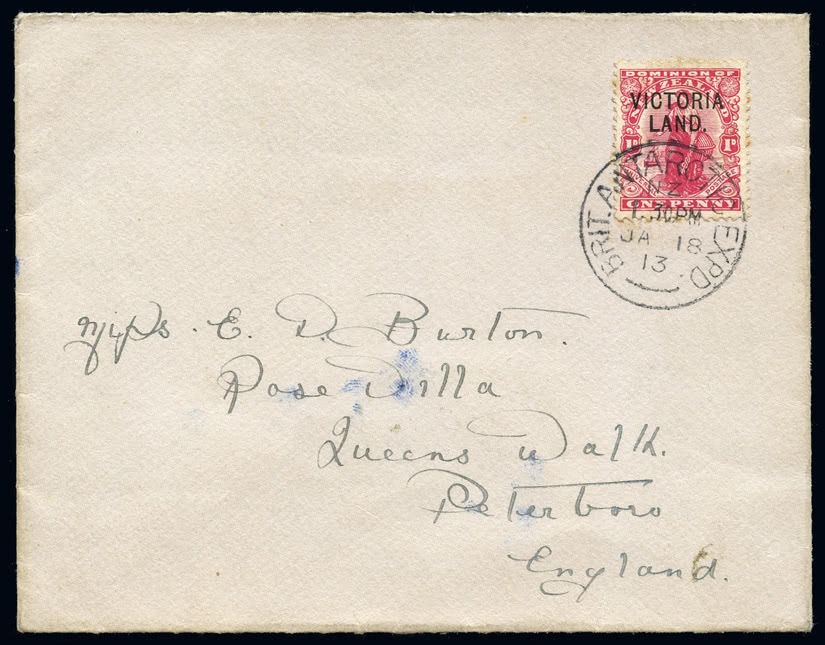 DOMINION OF
NEW ZEALAND
VICTORIA
LAND.
1D 1D
UNIVERSAL POSTAGE
ONE PENNY
BRIT. ANTARCTIC EXPD
N.Z.
1.30PM
JA 18
13
E. D. Burton.
Rose Villa
Queens Walk.
Peterboro
England.